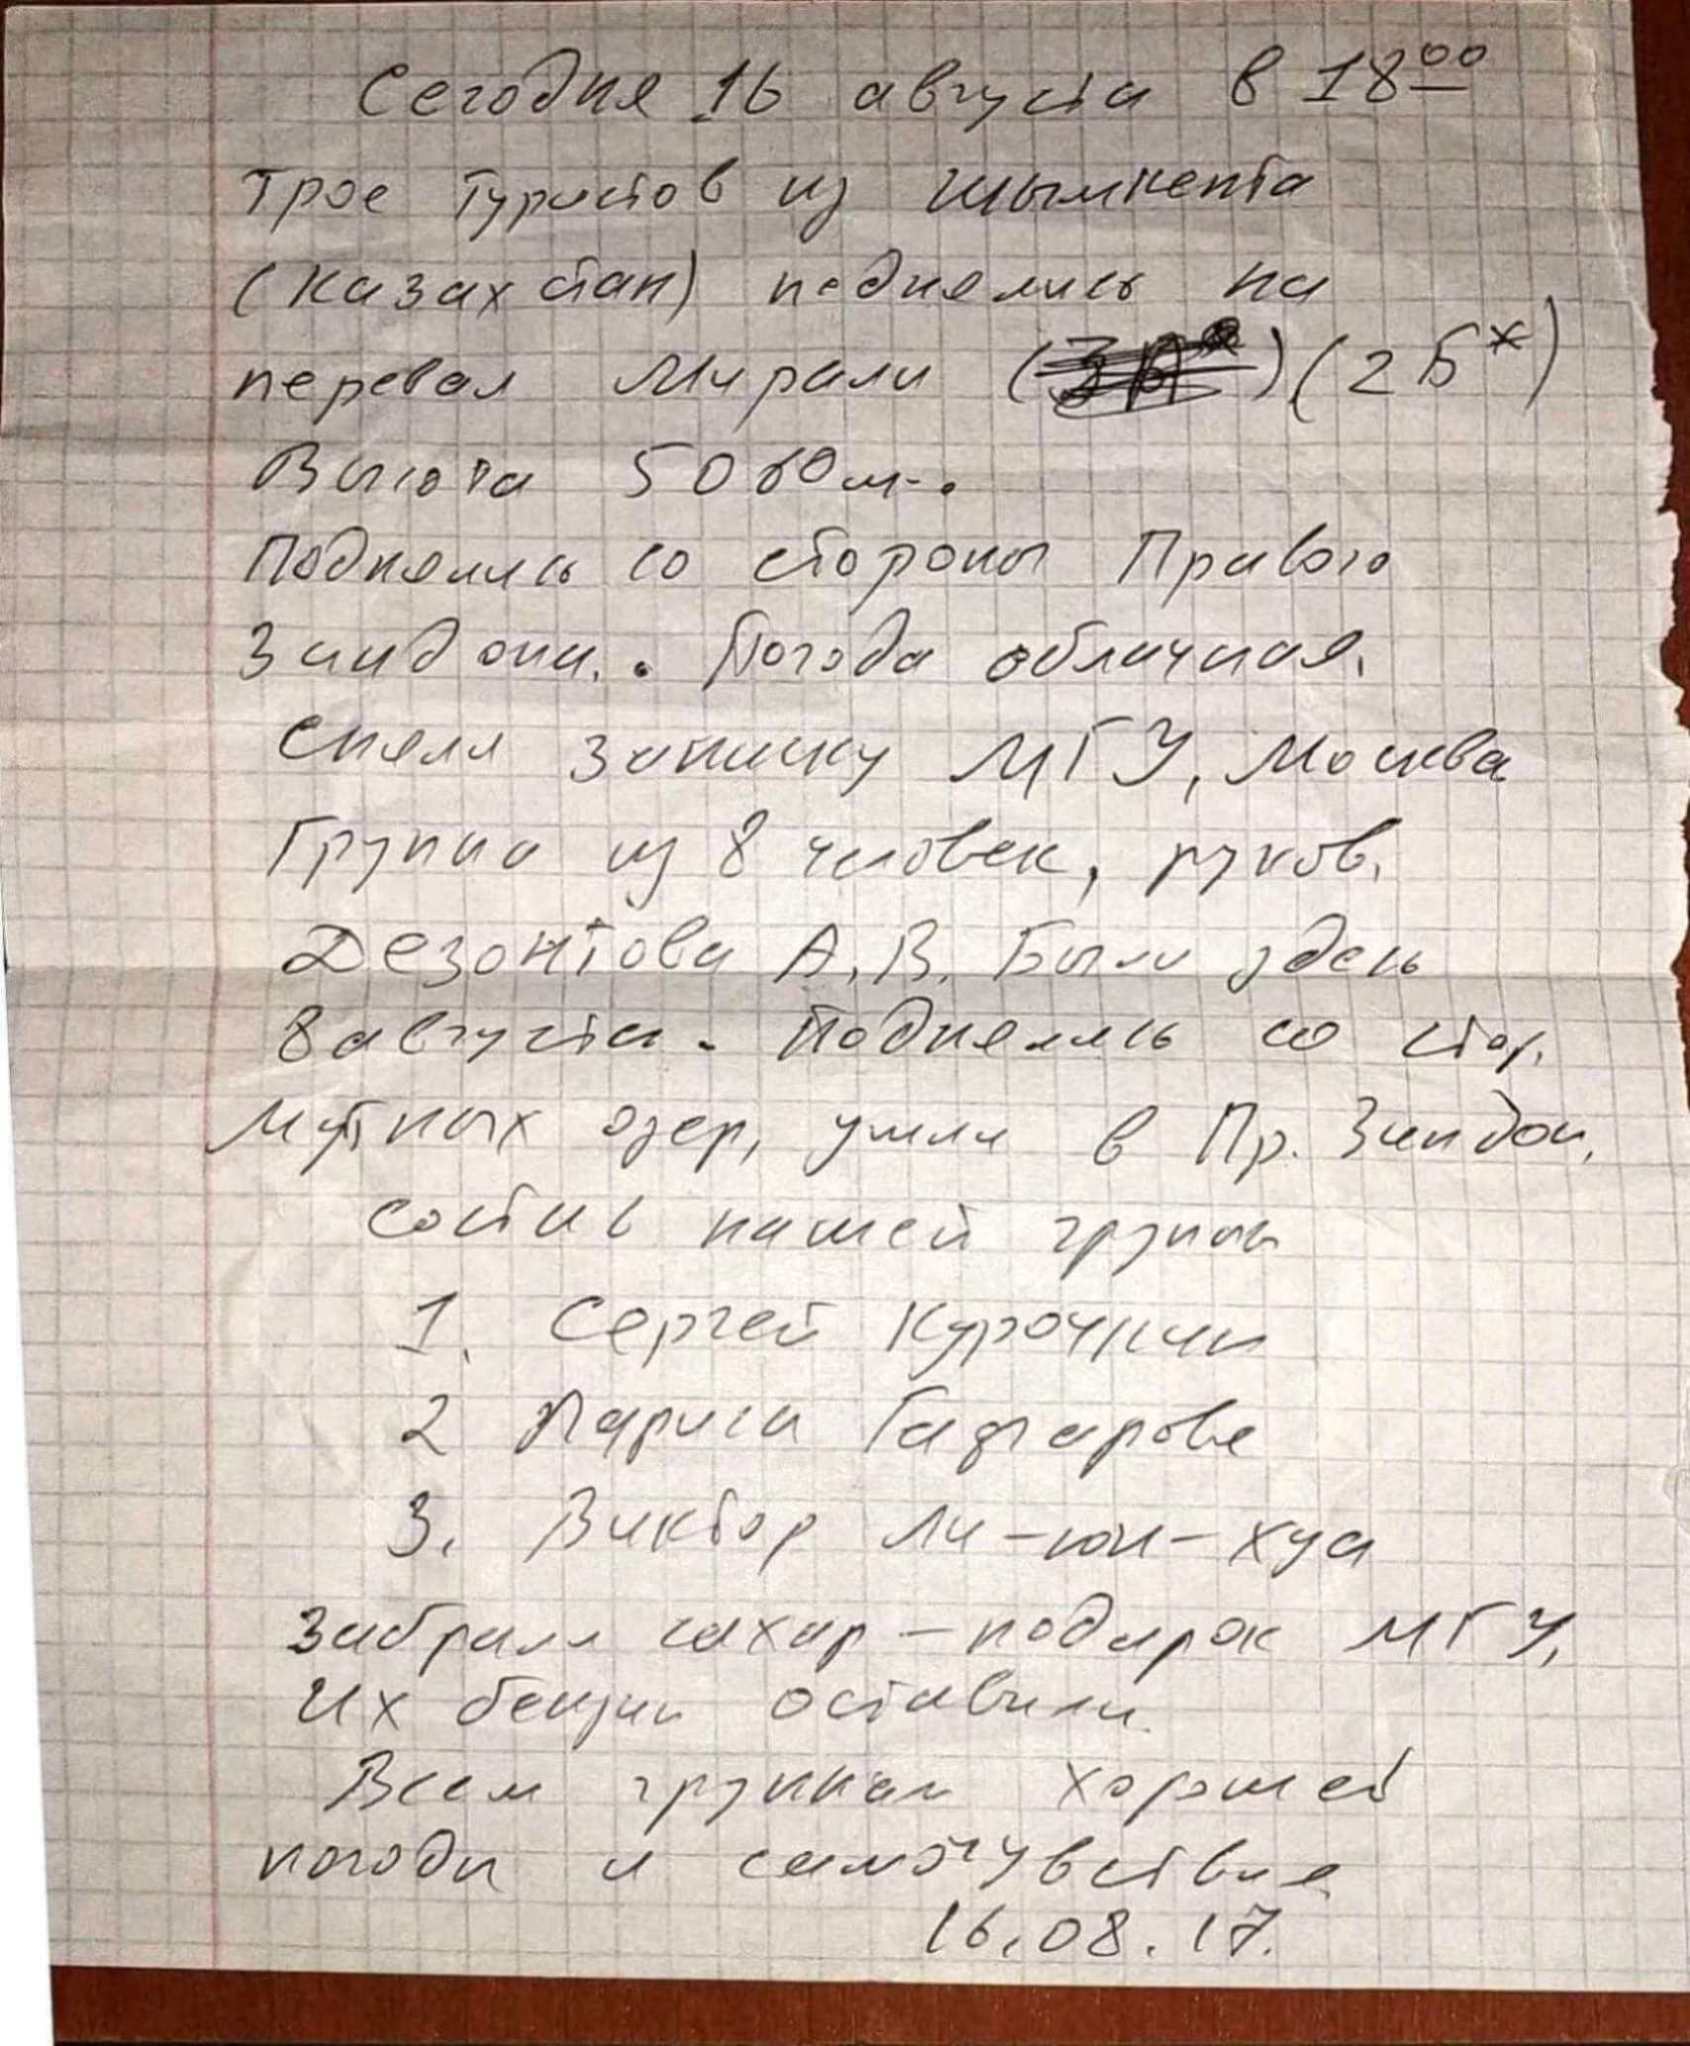 Сегодня 16 августа в 18⁰⁰
трое туристов из Шымкента
(Казахстан) поднялись на
перевал Мирали ( ) (2Б*)
Высота 5060м.
Поднялись со стороны Правого
Зиндона. Погода облачная.
Сняли записку МГУ, Москва
Группа из 8 человек, руков.
Дезонтова А.В. Были здесь
8 августа. Поднялись со стор.
Мутных озер, ушли в Пр. Зиндон.
Состав нашей группы
1. Сергей Курочкин
2 Лариса Гафарова
3. Виктор Ли-юн-хуа
Забрали сахар – подарок МГУ,
Их бензин оставили.
Всем группам хорошей
погоды и самочувствия
16.08.17.